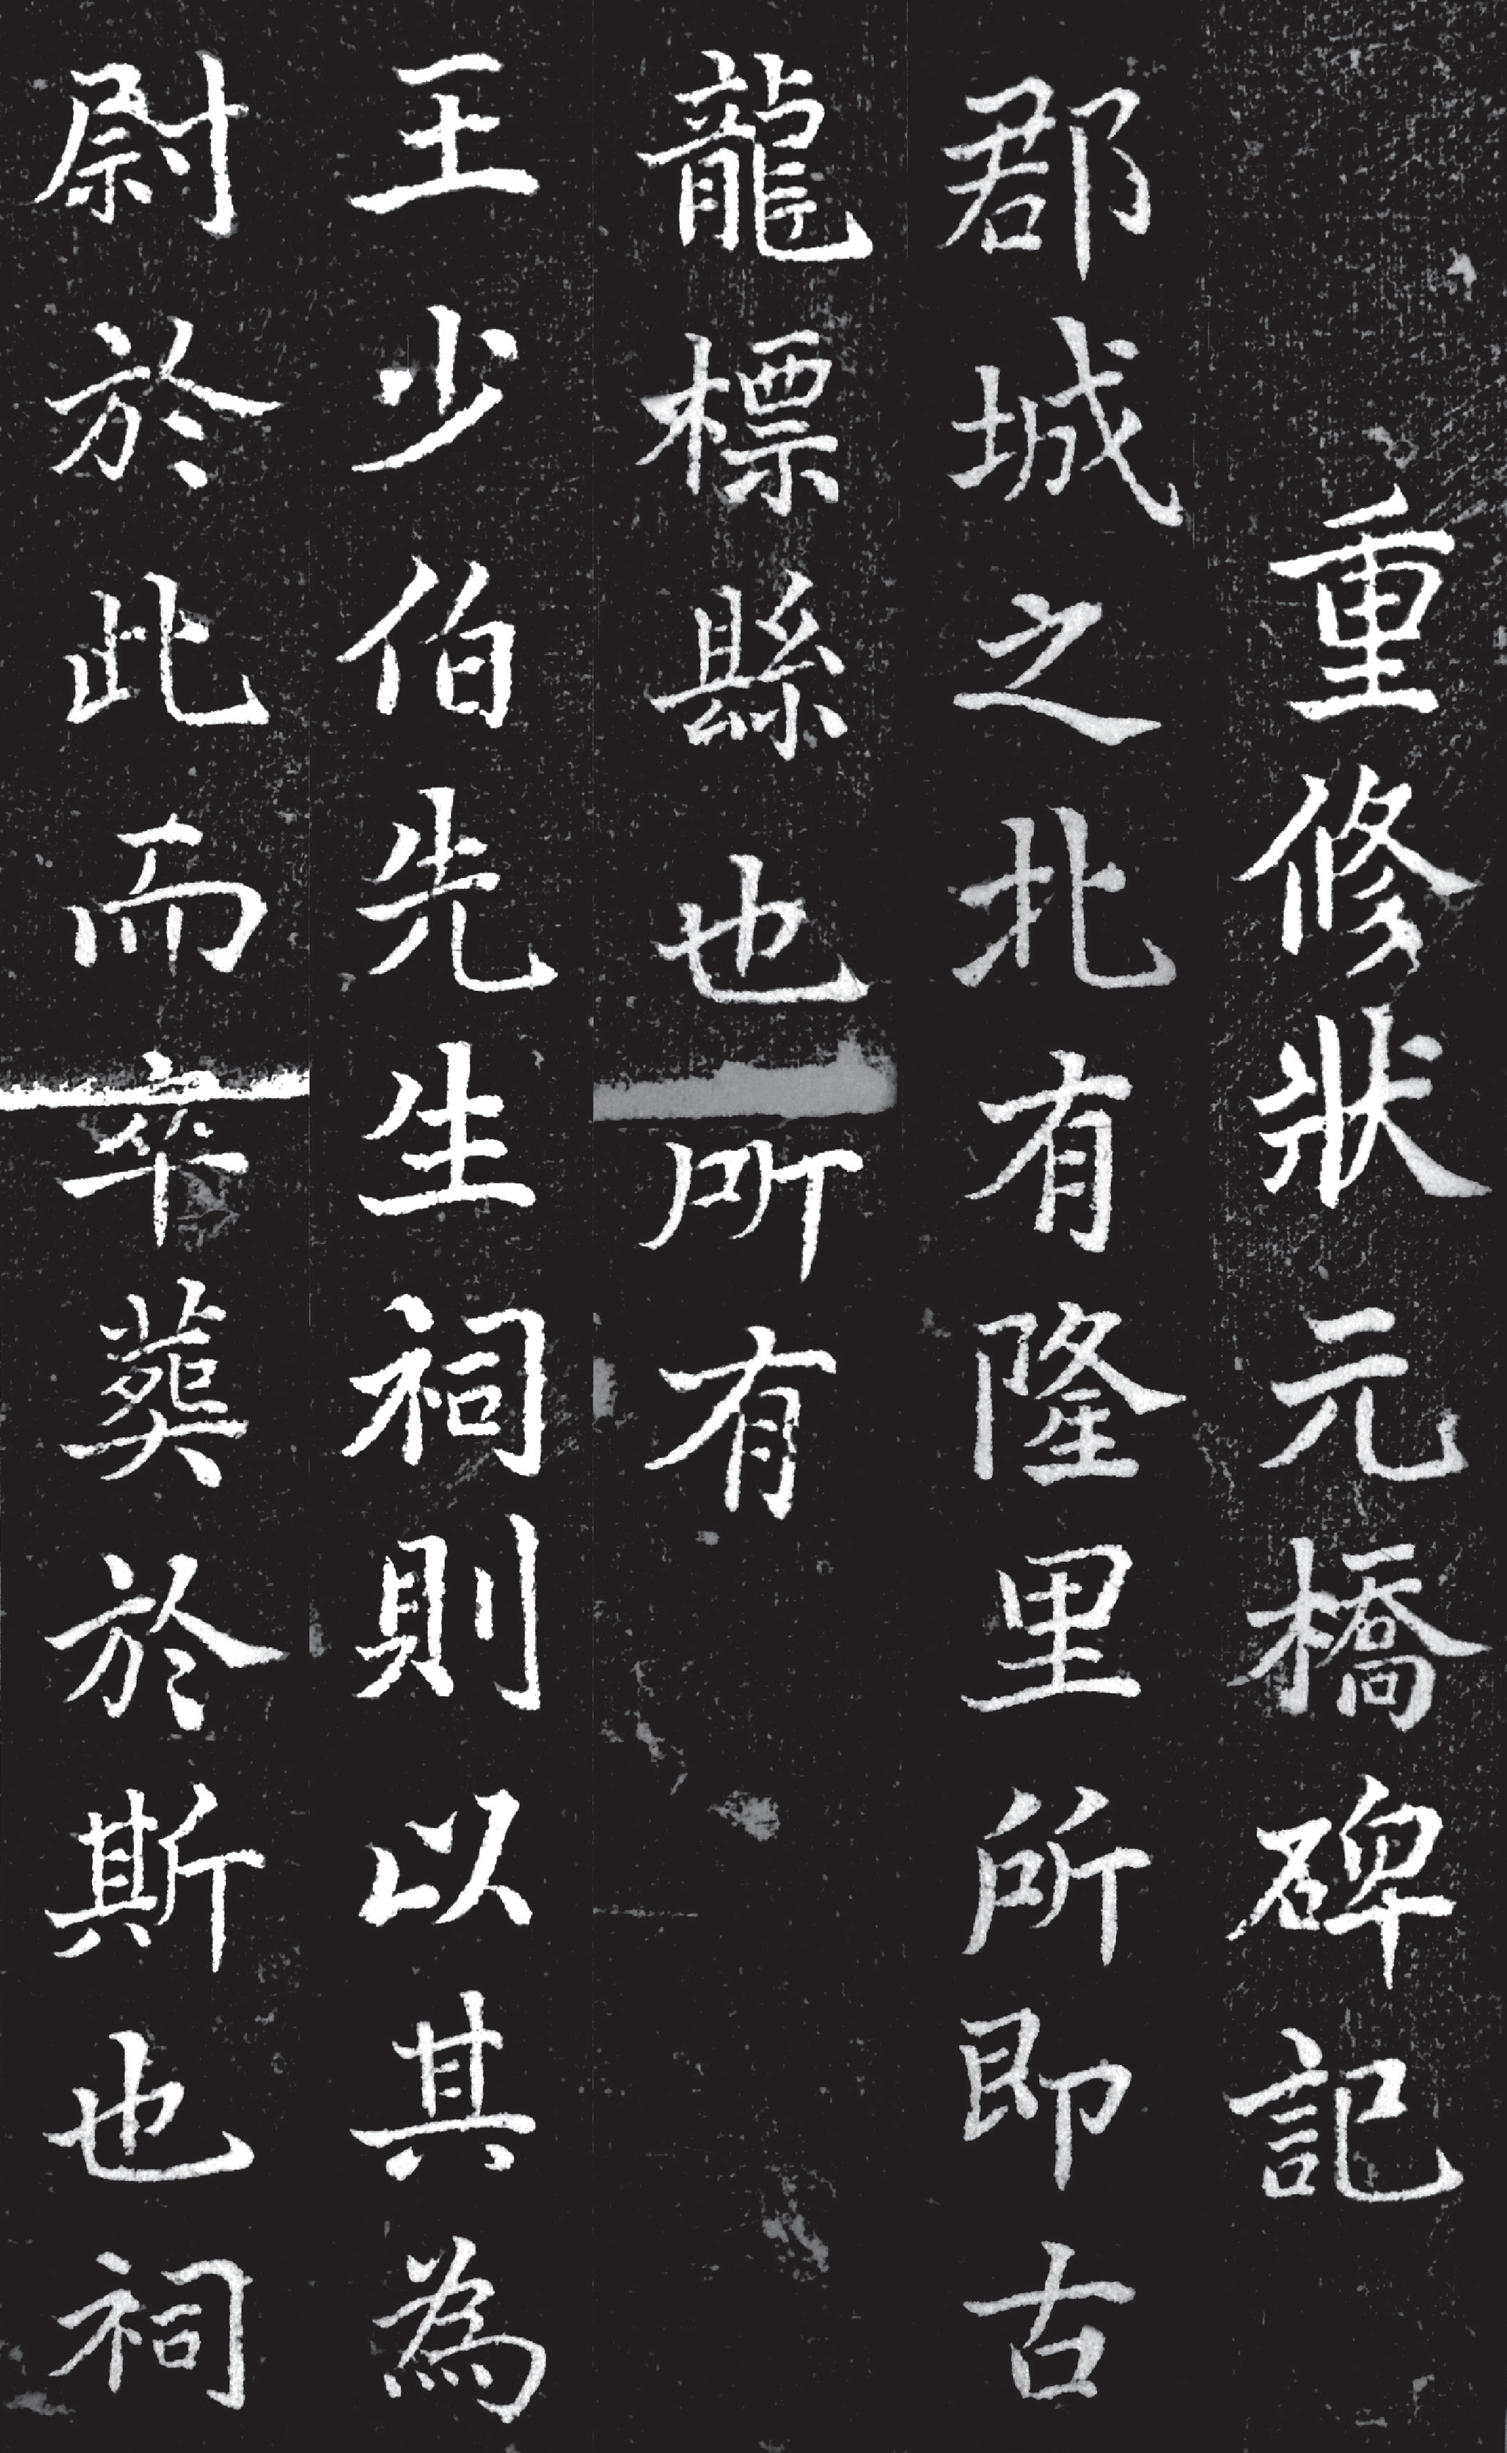 重修狀元橋碑記
郡城之北有隆里所即古
龍標縣也所有
王少伯先生祠則以其為
尉於此而卒葬於斯也祠